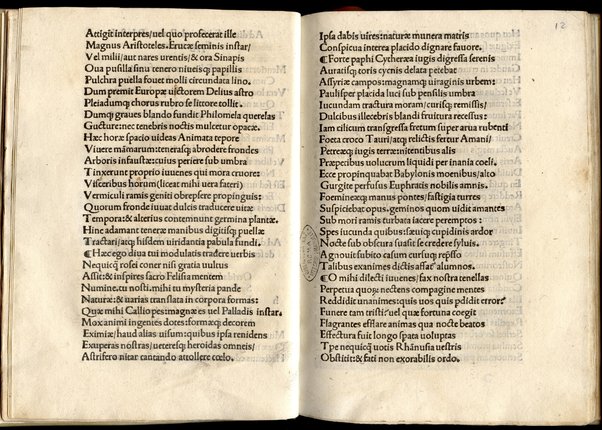 Attigit interpres/uel quo profecerat ille
Magnus Aristoteles. Erucæ seminis instar/
Vel milii/aut nares urentis/& ora Sinapis
Oua pusilla sinu tenero niueisq; papillis
Pulchra puella foue: molli circundata lino.
Dum premit Europæ uectorem Delius astro
Pleiadumq; chorus rubro se littore tollit.
Dumq; graues blando fundit Philomela querelas
Gutture: nec tenebris noctis mulcetur opacæ.
Hæc horæ spacio uideas Animata tepore
Viuere mâmarum: tenerasq; abrodere frondes
Arboris infaustæ: cuius periere sub umbra
Tinxerunt proprio iuuenes qui mora cruore:
Visceribus horum (liceat mihi uera fateri)
Vermiculi ramis geniti obrepsere propinquis:
Quorum fronde iuuat dulces traducere uitæ
Tempora: & alterius contemnunt germina plantæ.
Hinc adamant teneræ manibus digitisq; puellæ
Tractari/atq; hisdem uiridantia pabula fundi.
¶Hæc ego diua tui modulatis tradere uerbis
Nequicq̃ rosei coner nisi gratia uultus
Assit: & inspires sacro Felisia mentem
Numine. tu nosti. mihi tu mysteria pande
Naturæ: & uarias translata in corpora formas:
Quæ mihi Calliopes: magnæ es uel Palladis instar.
Mox animi ingentes dotes: formæq; decorem
Eximiæ/haud alias uisum: quibus ipsa renidens
Exuperas nostras/ueteresq; heroidas omneis/
Astrifero nitar cantando attollere cœlo.
12
Ipsa dabis uires: naturæ munera matris
Conspicua interea placido dignare fauore.
¶Forte paphi Cytheræa iugis digressa serenis
Auratisq; toris cycnis delata petebat
Assyriæ campos: magnanimq; uiraginis urbem:
Paulisper placida luci sub pensilis umbra
Iucundam tractura moram/cursisq; remissis/
Dulcibus illecebris blandi fruitura recessus:
Iam cilicum transgressa fretum super arua rubenti
Foeta croco Tauri/atq; relictis fertur Amani/
Petreæq; iugis terræ: nitentibus alis
Præpetibus uolucrum liquidi per inania coeli.
Ecce propinquabat Babylonis moenibus/alto
Gurgite perfusus Euphratis nobilis amnis.
Foemineæq; manus pontes/fastigia turres
Suspicit ebat opus. geminos quom uidit amantes
Sub mori ramis turbata iacere peremptos:
Spes iucunda quibus: sæuiq; cupidinis ardor
Nocte sub obscura suasit se credere syluis.
Agnouit subito casum cursusq; represso
Talibus exanimes dictis affat͂ alumnos.
¶O mihi dilecti iuuenes/fax nostra tenellas
Perpetua quorū nectens compagine mentes
Reddidit unanimes: quis uos quis pdidit error?
Funere tam tristi: uel quæ fortuna coegit
Flagrantes efflare animas qua nocte beatos
Effectura fuit longo spata uoluptas
Tpe nequicq̃ uotis Rhānusia uestris
Obstitit: & fati non exorabilis ordo.